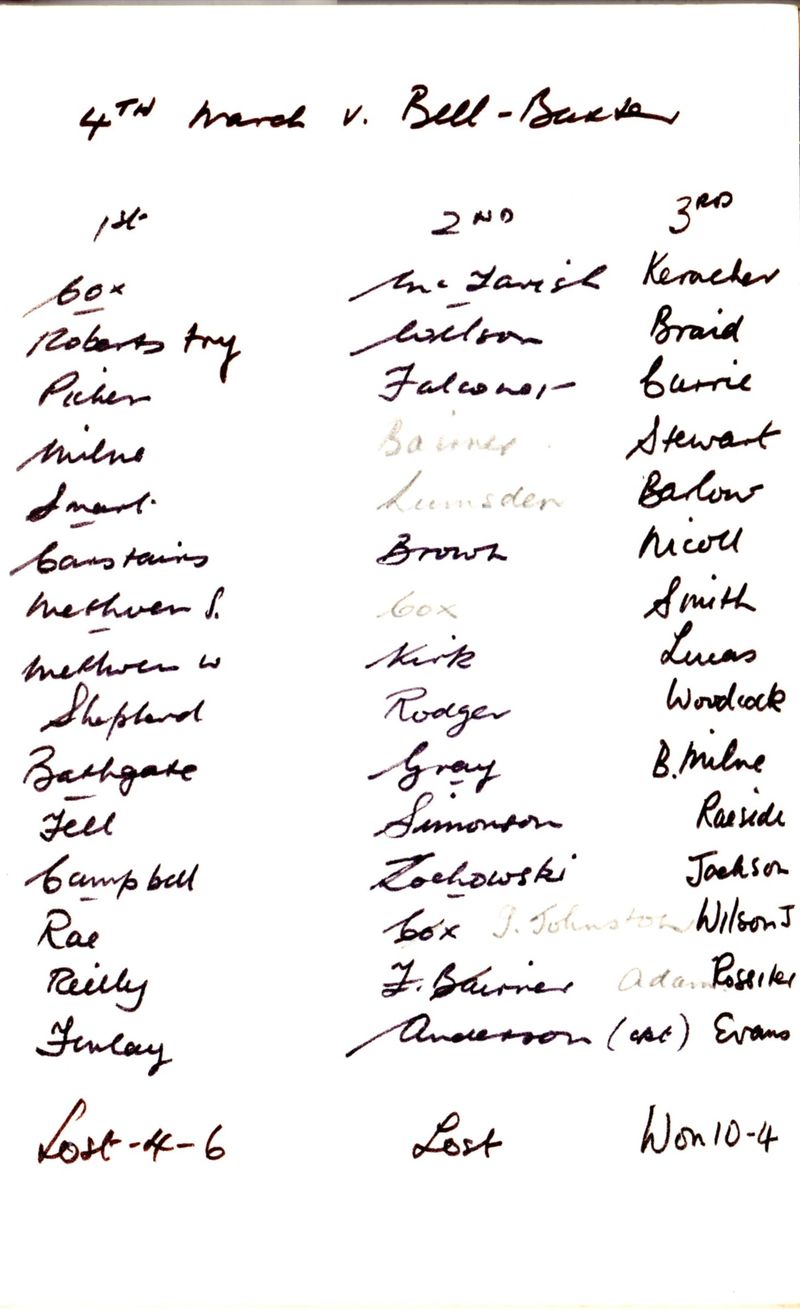 4TH March v. Bell-Baxter
1st 2ND 3RD
Cox McTavish Keracher
Roberts try Wilson Braid
Picken Falconer Currie
Milne Bairner Stewart
Smart Lumsden Barlow
Carstairs Brown Nicoll
Methven S. Cox Smith
Methven W Kirk Lucas
Shepherd Rodger Woodcock
Bathgate Gray B. Milne
Fell Simonson Raeside
Campbell Zochowski Jackson
Rae Cox J. Johnston Wilson J
Reilly F. Bairner Adam Rossiter
Finlay Anderson (cpt) Evans
Lost-4-6 Lost Won 10-4